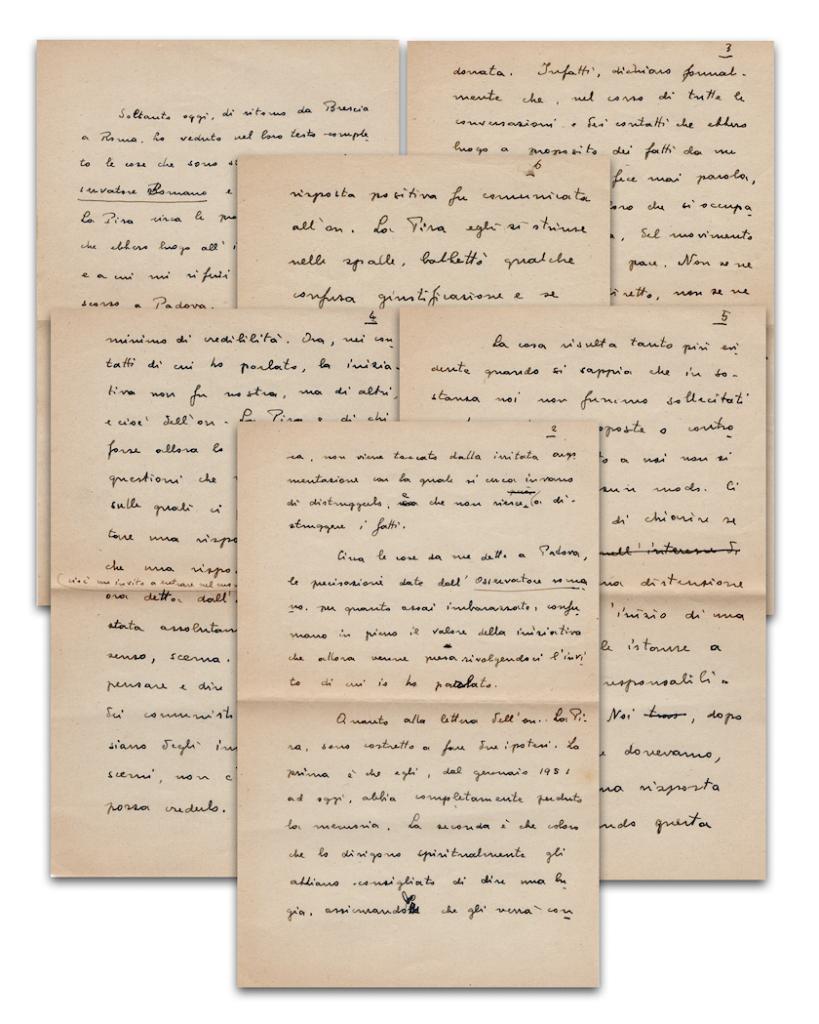 Soltanto oggi, di ritorno da Brescia
a Roma, ho veduto nel loro testo comple
to le cose che sono s
servatore Romano e
La Pira circa le
che ebbero luogo all'i
e a cui mi riferii
scorso a Padova.
2
ca, non viene toccato dalla irritata argo
mentazione con la quale si cerca invano
di distruggerlo, che non riesce a di-
struggere i fatti.
Circa le cose da me dette a Padova,
le precisazioni date dall'Osservatore roma
no, per quanto assai imbarazzate, confer
mano in pieno il valore della iniziativa
che allora venne presa rivolgendoci l'invi
to di cui io ho parlato.
Quanto alla lettera dell'on. La Pi-
ra, sono costretto a fare due ipotesi. La
prima è che egli, dal gennaio 1951
ad oggi, abbia completamente perduto
la memoria. La seconda è che coloro
che lo dirigono spiritualmente gli
abbiano consigliato di dire una bu
gia, assicurandogli che gli verrà con
3
donata. Infatti, dichiaro formal-
mente che, nel corso di tutte le
conversazioni e dei contatti che ebbero
luogo a proposito dei fatti da me
fece mai parola,
loro che si occupa
, del movimento
pace. Non se ne
diretto, non se ne
4
minimo di credibilità. Ora, nei con
tatti di cui ho parlato, la inizia-
tiva non fu nostra, ma di altri,
e cioè dell'on. La Pira e di chi
forse allora lo
questioni che
sulle quali ci
tare una rispo
che una rispo
(cioè un invito a entrare nel
ora detto dall'
stata assolutam
senso, scema.
pensare e dire
dei comunisti
siano degli in
scemi, non c'
possa crederlo.
5
La cosa risulta tanto più evi
dente quando si sappia che in so-
stanza noi non fummo sollecitati
proposte o contro
to a noi non si
sun modo. Ci
di chiarire se
nell'interesse di
una distensione
l'inizio di una
le istanze a
responsabili-
Noi , dopo
e dovevamo,
una risposta
ndo questa
6
risposta positiva fu comunicata
all'on. La Pira egli si strinse
nelle spalle, balbettò qualche
confusa giustificazione e se